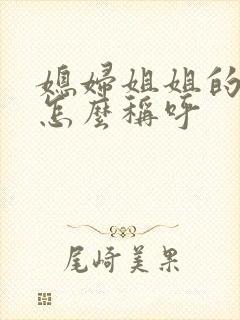 媳婦姐姐的
怎麼稱呼
尾崎美果